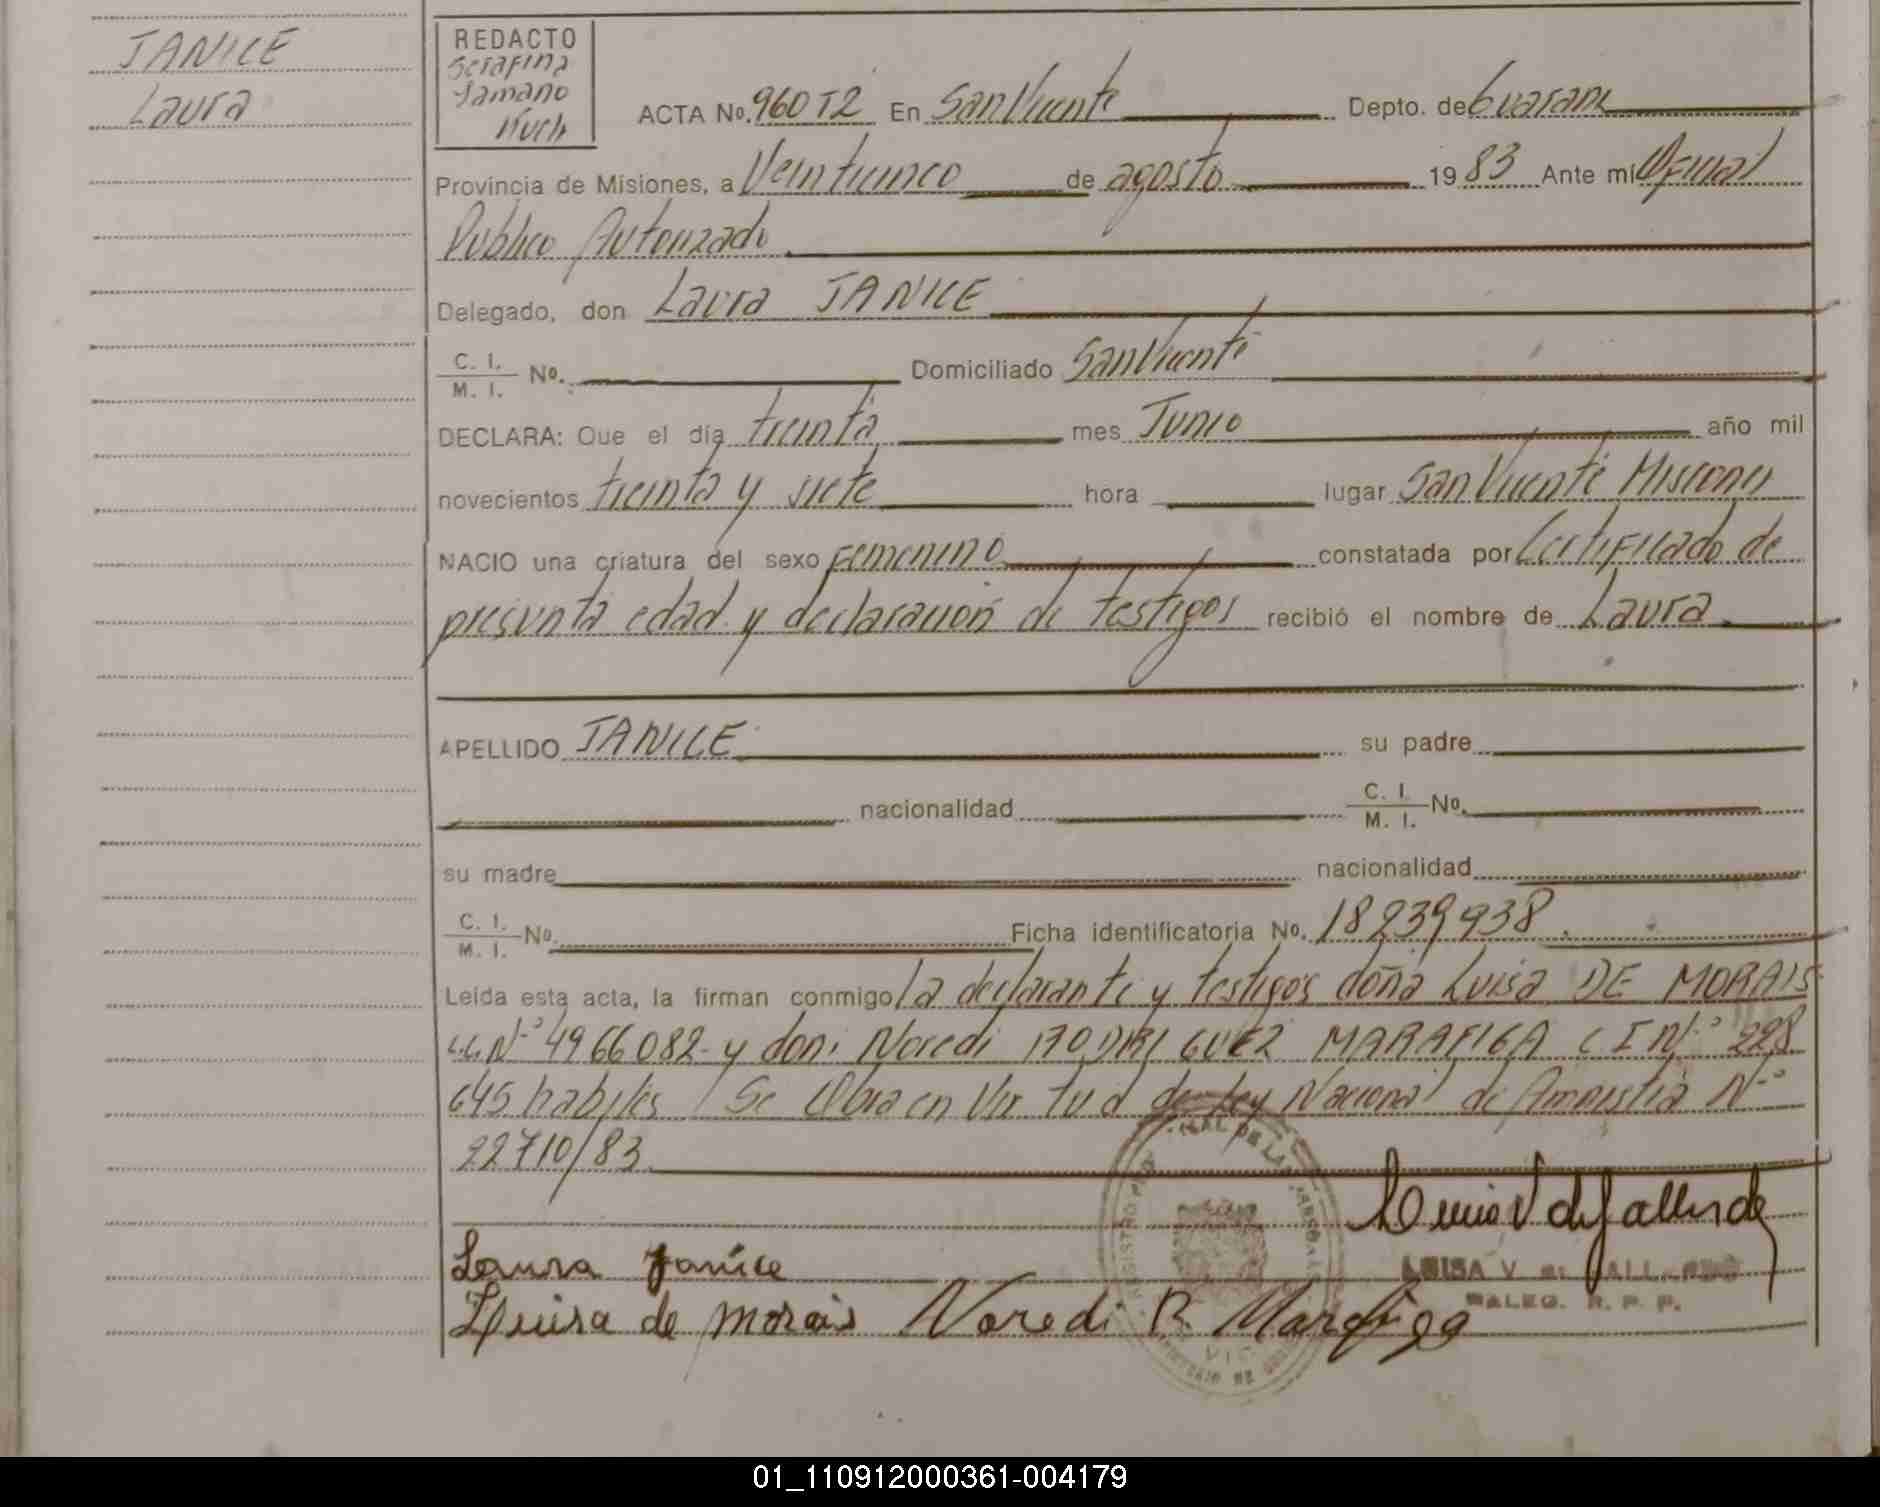 JANICE
Laura
REDACTO
Serafina
Kuch
ACTA No. 960 T2 En San Vicente Depto. de Guarani
Provincia de Misiones, a Veinticinco de agosto 1983 Ante mi Oficial
Publico Autorizado
Delegado, don Laura JANICE
C. I.
M. I. No. Domiciliado San Vicente
DECLARA: Que el día treinta mes Junio año mil
novecientos treinta y siete hora lugar San Vicente Misiones
NACIO una criatura del sexo Femenino constatada por Certificado de
presunta edad y declaracion de testigos recibió el nombre de Laura
APELLIDO JANICE su padre
nacionalidad C. I.
M. I. No.
su madre nacionalidad
C. I.
M. I. No. Ficha identificatoria No. 18239938
Leida esta acta, la firman conmigo la declarante y testigos doña Luisa DE MORAIS
Nº 4966082 y don: Noredi RODRIGUEZ MARAFIGA C I Nº 228
645 habiles Se Obra en Virtud de Ley Nacional de Amnistia Nº
22710/83
Laura Janice
LUISA V
R. P. P.
Luisa de Morais Noredi R. Marafiga
01_110912000361-004179